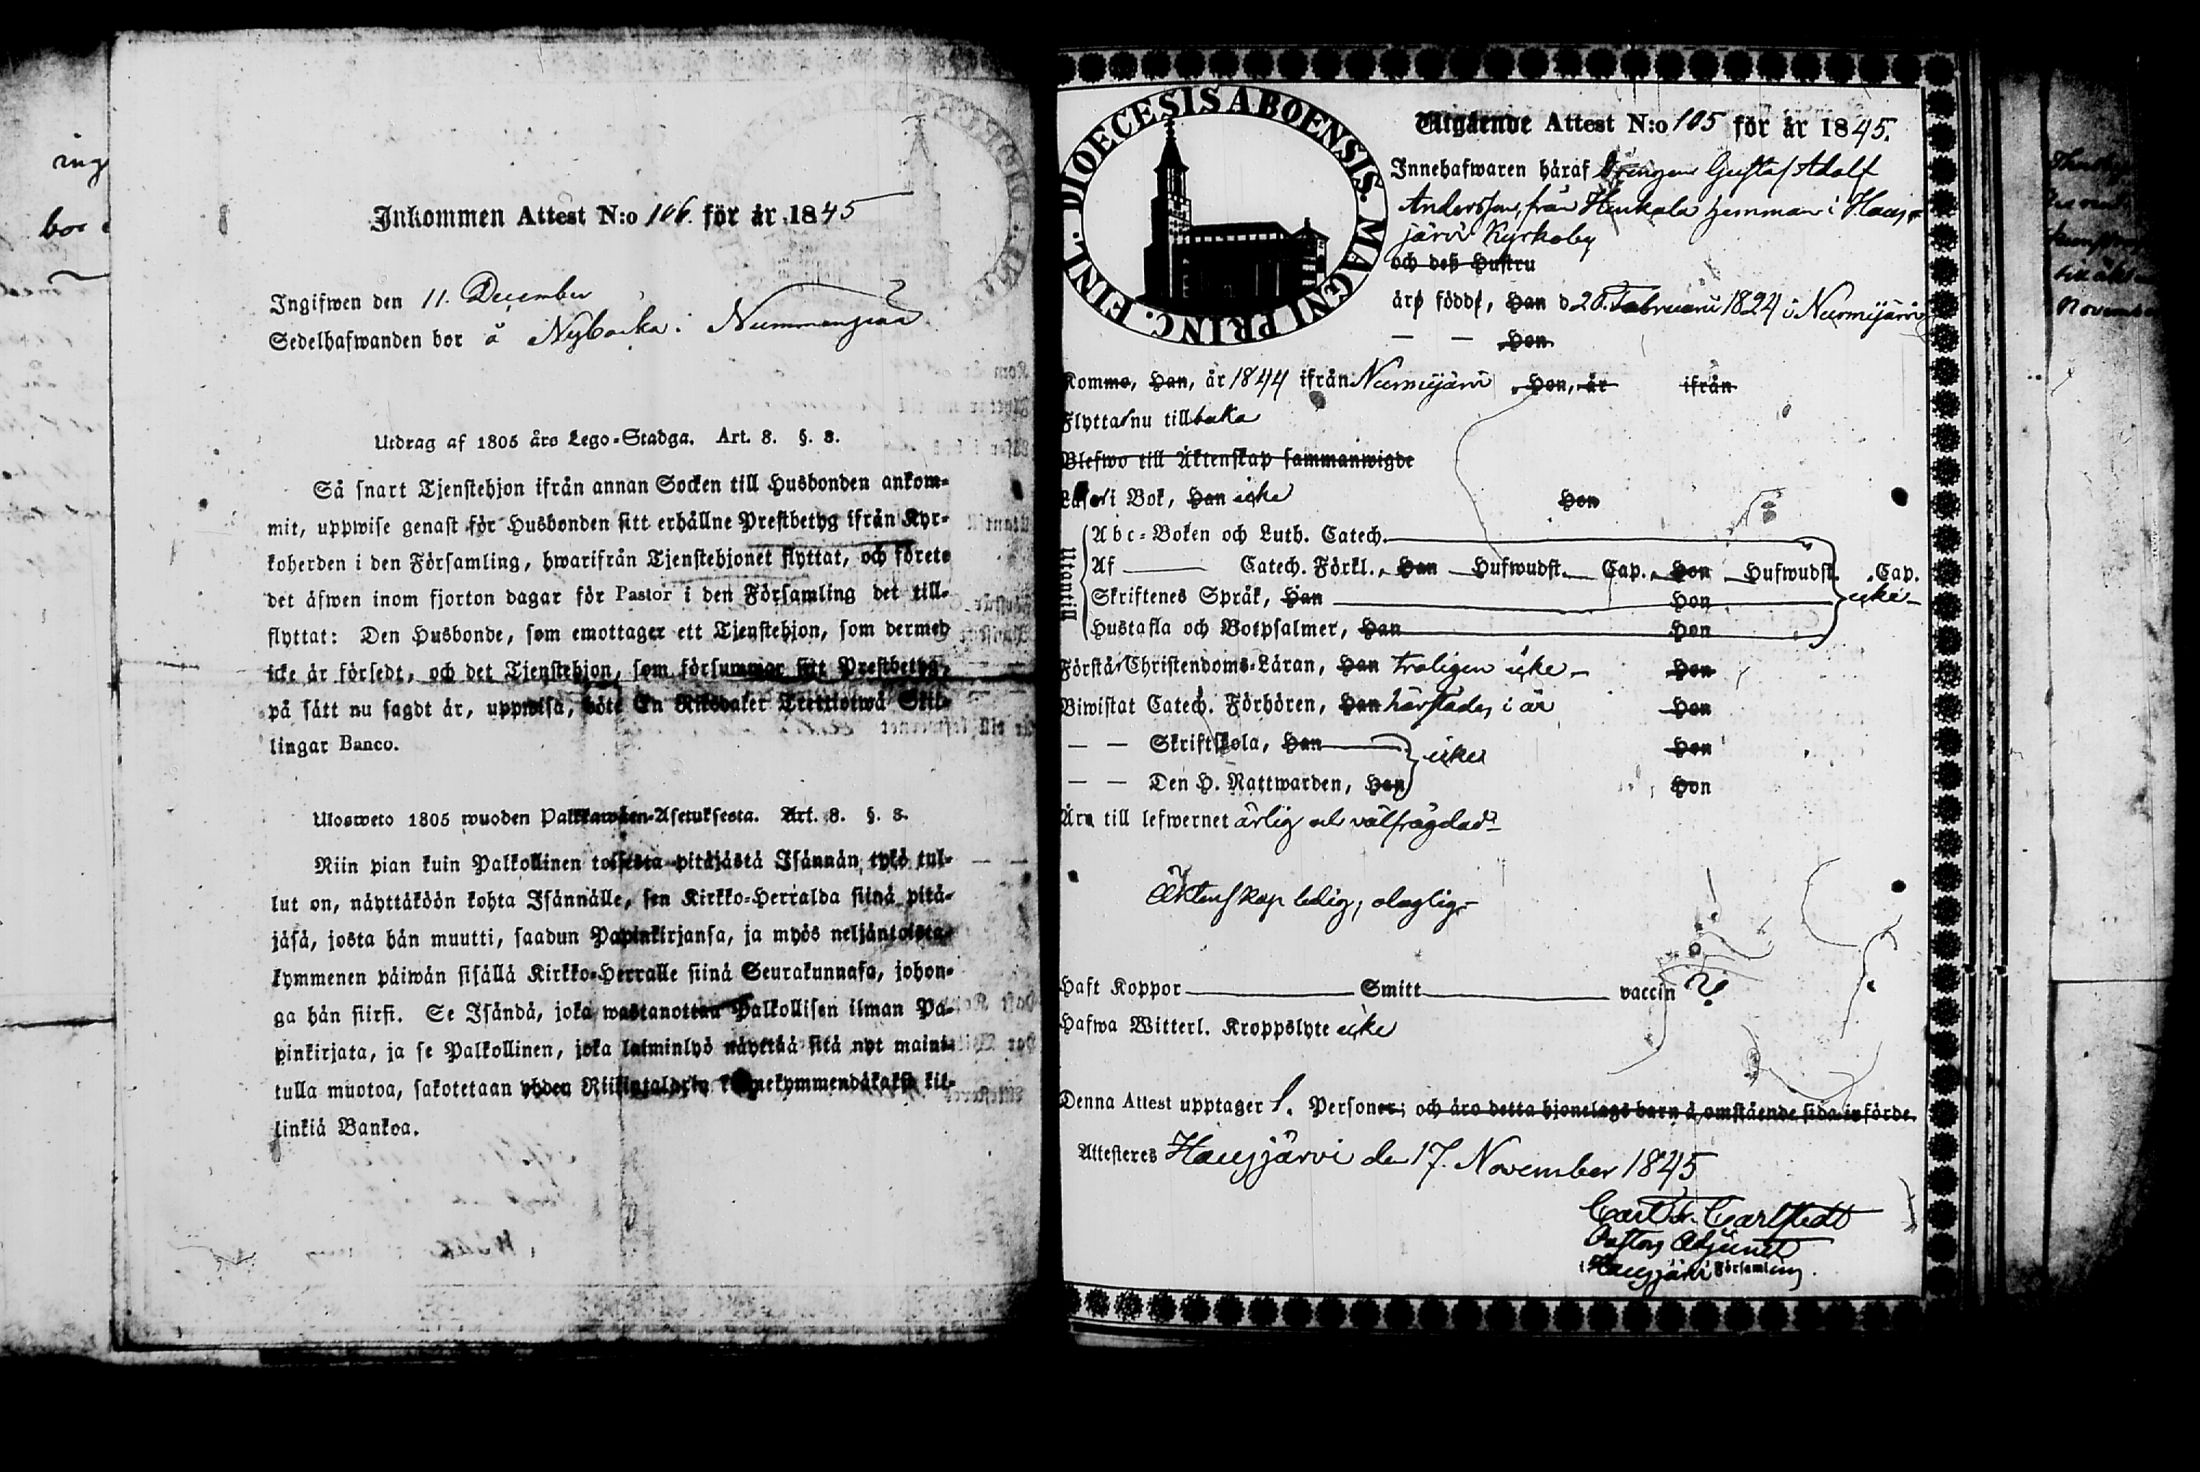 Inkommen Attest N:o 106. för år 1845
Ingifwen den 11. December
Sedelhafwanden bor å Nybacka i Nummenpää
Utdrag af 1805 års Lego-Stadga. Art. 8. §. 8.
Så snart Tjenstehjon ifrån annan Socken till Husbonden ankom-
mit, uppwise genast för Husbonden sitt erhållne Prestbetyg ifrån Kyr-
koherden i den Församling, hwarifrån Tjenstehjonet flyttat, och förete
det äfwen inom fjorton dagar för Pastor i den Församling det till-
flyttat: Den Husbonde, som emottager ett Tjenstehjon, som dermed
icke är försedt, och det Tjenstehjon, som försummar sitt Prestbetyg,
på sätt nu sagdt är, uppwisa, böte En Riksdaler Trettiotwå Skil-
lingar Banco.
Ulosweto 1805 wuoden Palkkawäen-Asetuksesta. Art. 8. §. 8.
Niin pian kuin Palkollinen toisesta pitäjästä Isännän tykö tul-
lut on, näyttäköön kohta Isännälle, sen Kirkko-Herralda siinä pitä-
jäsä, josta hän muutti, saadun Papinkirjansa, ja myös neljäntoista-
kymmenen päiwän sisällä Kirkko-Herralle siinä Seurakunnasa, johon-
ga hän siirsi. Se Isändä, joka wastanottaa Palkollisen ilman Pa-
pinkirjata, ja se Palkollinen, joka laiminlyö näyttää sitä nyt maini-
tulla muotoa, sakotetaan yhden Riikintalarin kolmekymmendäkaksi kil-
linkiä Bankoa.
DIOECESIS ABOENSIS. MAGNI PRINC. FINL.
Utgående Attest N:o 105 för år 1845.
Innehafwaren häraf Drängen Gustaf Adolf
Andersson, från Heukala hemman i Haus-
järvi Kyrkoby
och deß Hustru
äro födde, Han d 20. Februari 1824 i Nurmijärvi
— — Hon
Kommo, Han, år 1844 ifrån Nurmijärvi Hon, år ifrån
Flytta nu tillbaka
Blefwo till Äktenskap sammanwigde
Läser i Bok, Han icke Hon
Utantill
Abc-Boken och Luth. Catech.
Af Catech. Förkl. Han Hufwudst. Cap. Hon Hufwudst. Cap.
Skriftenes Språk, Han Hon icke
Hustafla och Botpsalmer, Han Hon
Förstår Christendoms-Läran, Han troligen icke Hon
Biwistat Catech. Förhören, Han härstädes i år Hon
— — Skriftskola, Han icke Hon
— — Den H. Nattwarden, Han Hon
Äro till lefwernet ärlig och välfrägdad
Äktenskap ledig, olaglig
Haft Koppor Smitt vaccin ?
Hafwa Witterl. Kroppslyte icke
Denna Attest upptager 1. Personer; och äro detta hjonelags barn å omstående sida införde.
Attesteres Hausjärvi den 17. November 1845
Carl Fr. Carlstedt
Pastors Adjunct
i Hausjärvi Församling.